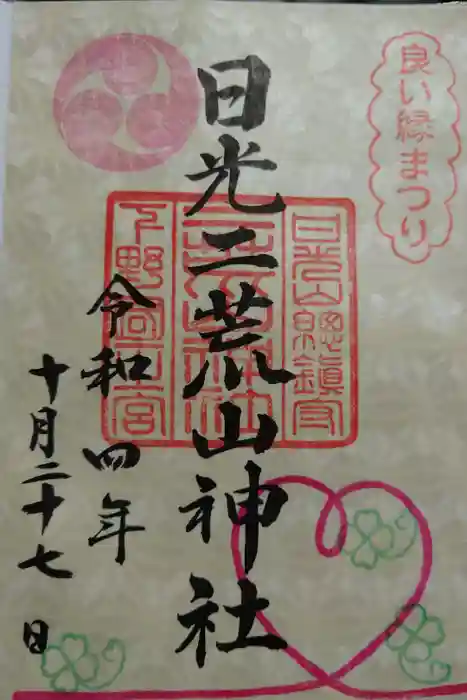 良い縁まつり
日光二荒山神社
日光山總鎮守
二荒山神社
下野國一宮
令和四年
十月二十七日